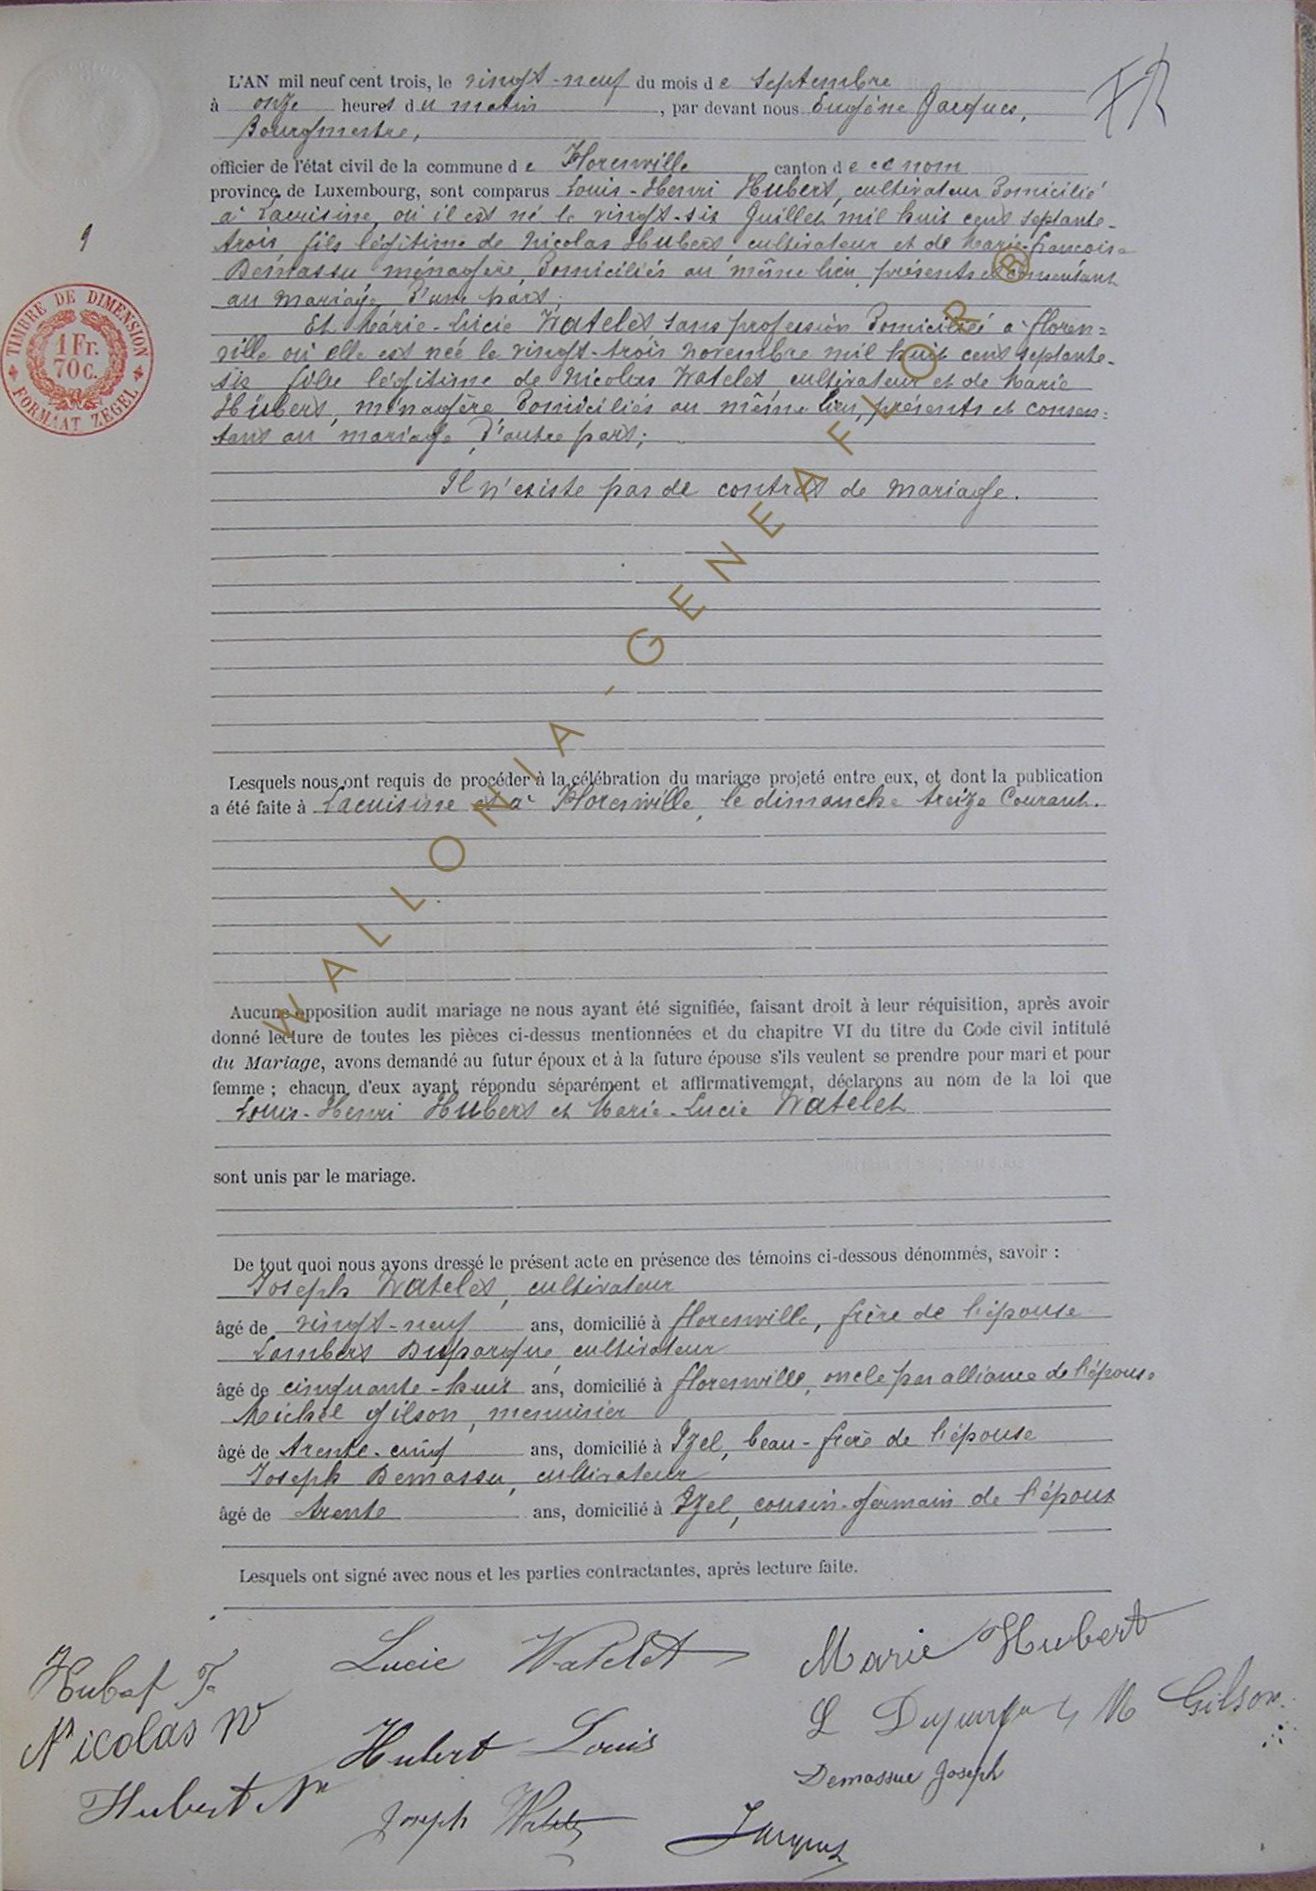 L'AN mil neuf cent trois, le vingt-neuf du mois de septembre
à onze heures du matin, par devant nous Eugène Jacques,
Bourgmestre,
officier de l'état civil de la commune de Florenville canton de ce nom
province de Luxembourg, sont comparus Louis-Henri Hubert, cultivateur domicilié
à Lacuisine, où il est né le vingt-six Juillet mil huit cent septante-
trois, fils légitime de Nicolas Hubert cultivateur et de Marie-Françoise
Demassu ménagère, domiciliés au même lieu, présents et consentant
au mariage d'une part;
Et Marie-Lucie Watelet sans profession domiciliée à Floren=
ville où elle est née le vingt-trois novembre mil huit cent septante-
six fille légitime de Nicolas Watelet cultivateur et de Marie
Hubert, ménagère domiciliés au même lieu, présents et consen=
tant au mariage, d'autre part;
Il n'existe pas de contrat de mariage.
9
TIMBRE DE DIMENSION
1 Fr.
70 c.
FORMAAT ZEGEL
WALLONIA-GENEAFLOR ®
Lesquels nous ont requis de procéder à la célébration du mariage projeté entre eux, et dont la publication
a été faite à Lacuisine et à Florenville, le dimanche treize Courant.
Aucune opposition audit mariage ne nous ayant été signifiée, faisant droit à leur réquisition, après avoir
donné lecture de toutes les pièces ci-dessus mentionnées et du chapitre VI du titre du Code civil intitulé
du Mariage, avons demandé au futur époux et à la future épouse s'ils veulent se prendre pour mari et pour
femme ; chacun d'eux ayant répondu séparément et affirmativement, déclarons au nom de la loi que
Louis-Henri Hubert et Marie-Lucie Watelet
sont unis par le mariage.
De tout quoi nous avons dressé le présent acte en présence des témoins ci-dessous dénommés, savoir :
Joseph Watelet, cultivateur
âgé de vingt-neuf ans, domicilié à Florenville, frère de l'épouse
Lambert Duparque, cultivateur
âgé de cinquante-huit ans, domicilié à Florenville, oncle par alliance de l'épouse
Michel Gilson, menuisier
âgé de trente-cinq ans, domicilié à Izel, beau-frère de l'épouse
Joseph Demassu, cultivateur
âgé de trente ans, domicilié à Izel, cousin-germain de l'époux
Lesquels ont signé avec nous et les parties contractantes, après lecture faite.
Lucie Watelet Marie Hubert
Nicolas W
Hubert Louis M Gilson
Hubert N
Demassue Joseph
Joseph Watelet Jacques